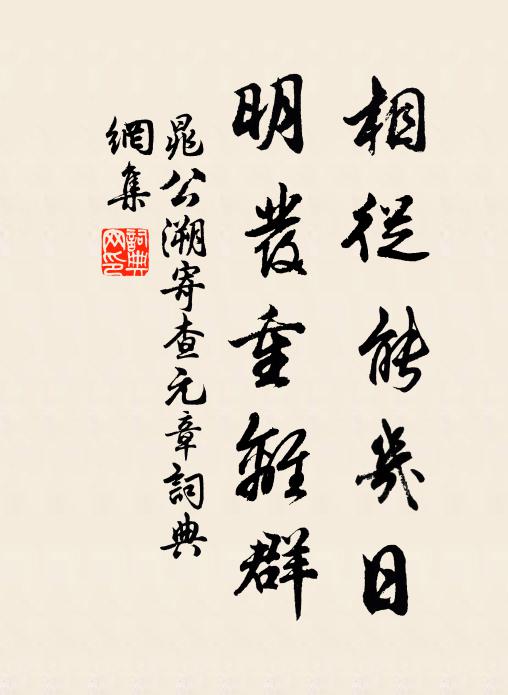 相從能幾日
明發重離群
晁公溯寄查元章詞典
網集
詞典網印